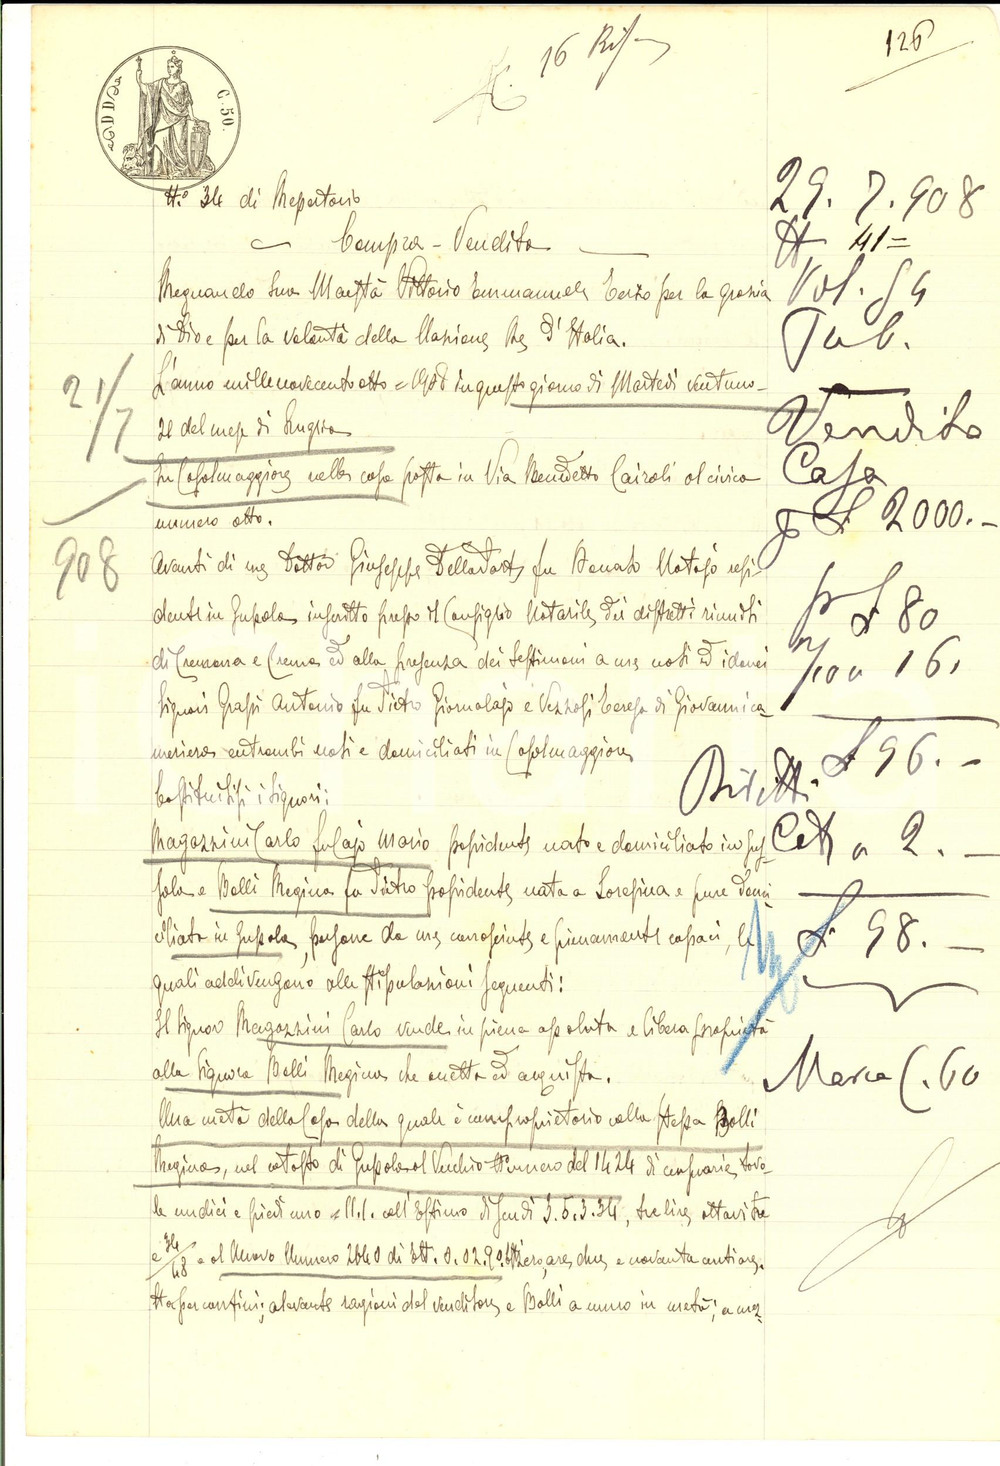 16 Ris
126
ADDO
C. 50.
N.° 34 di Repertorio
Compra - Vendita
Regnando Sua Maestà Vittorio Emmanuele Terzo per la grazia
di Dio e per la volontà della Nazione Re d'Italia.
L'anno millenovecentootto = 1908 in questo giorno di Martedì ventuno -
21 del mese di Luglio
In Casalmaggiore nella casa posta in Via Benedetto Cairoli al civico
numero otto.
Avanti di me Dottor Giuseppe Notajo resi-
dente in Gussola inscritto presso il Consiglio Notarile dei distretti riuniti
di Cremona e Crema ed alla presenza dei testimoni a me noti ed idonei
Signori Grassi Antonio fu Pietro Giornalajo e Vezzosi Teresa di Giovanni ca-
meriera entrambi noti e domiciliati in Casalmaggiore
Costituitisi i Signori:
Magazzini Carlo fu Cajo Mario possidente nato e domiciliato in Gus-
sola e Bolli Regina fu Pietro possidente nata a e pure domi-
ciliata in Gussola, persone da me conosciute e pienamente capaci, le
quali addivengono alle stipulazioni seguenti:
Il Signor Magazzini Carlo vende in piena assoluta e libera proprietà
alla Signora Bolli Regina che accetta ed acquista.
Una metà della Casa della quale è comproprietario colla stessa Bolli
Regina, nel catasto di Gussola al Vecchio Numero del 1424 di censuarie tavo-
le undici e piedi uno = 11.1. coll'Estimo di Scudi 3.5.3.34, tre lire ottavi tre
e 34/48 e al Nuovo Numero 2640 di Ett. 0.02.90. Ett. zero, are due e novanta centiare.
Fra confini; a levante ragioni del venditore e Bolli a muro in metà; a mez-
21/7
908
29. 7. 908
N 41 =
Vol. 54
Pub.
Vendita
Casa
p £ 2000. -
p £ 80
16.
£ 96. -
Diritti
Cat a 2. -
£ 98. -
Marca C. 60